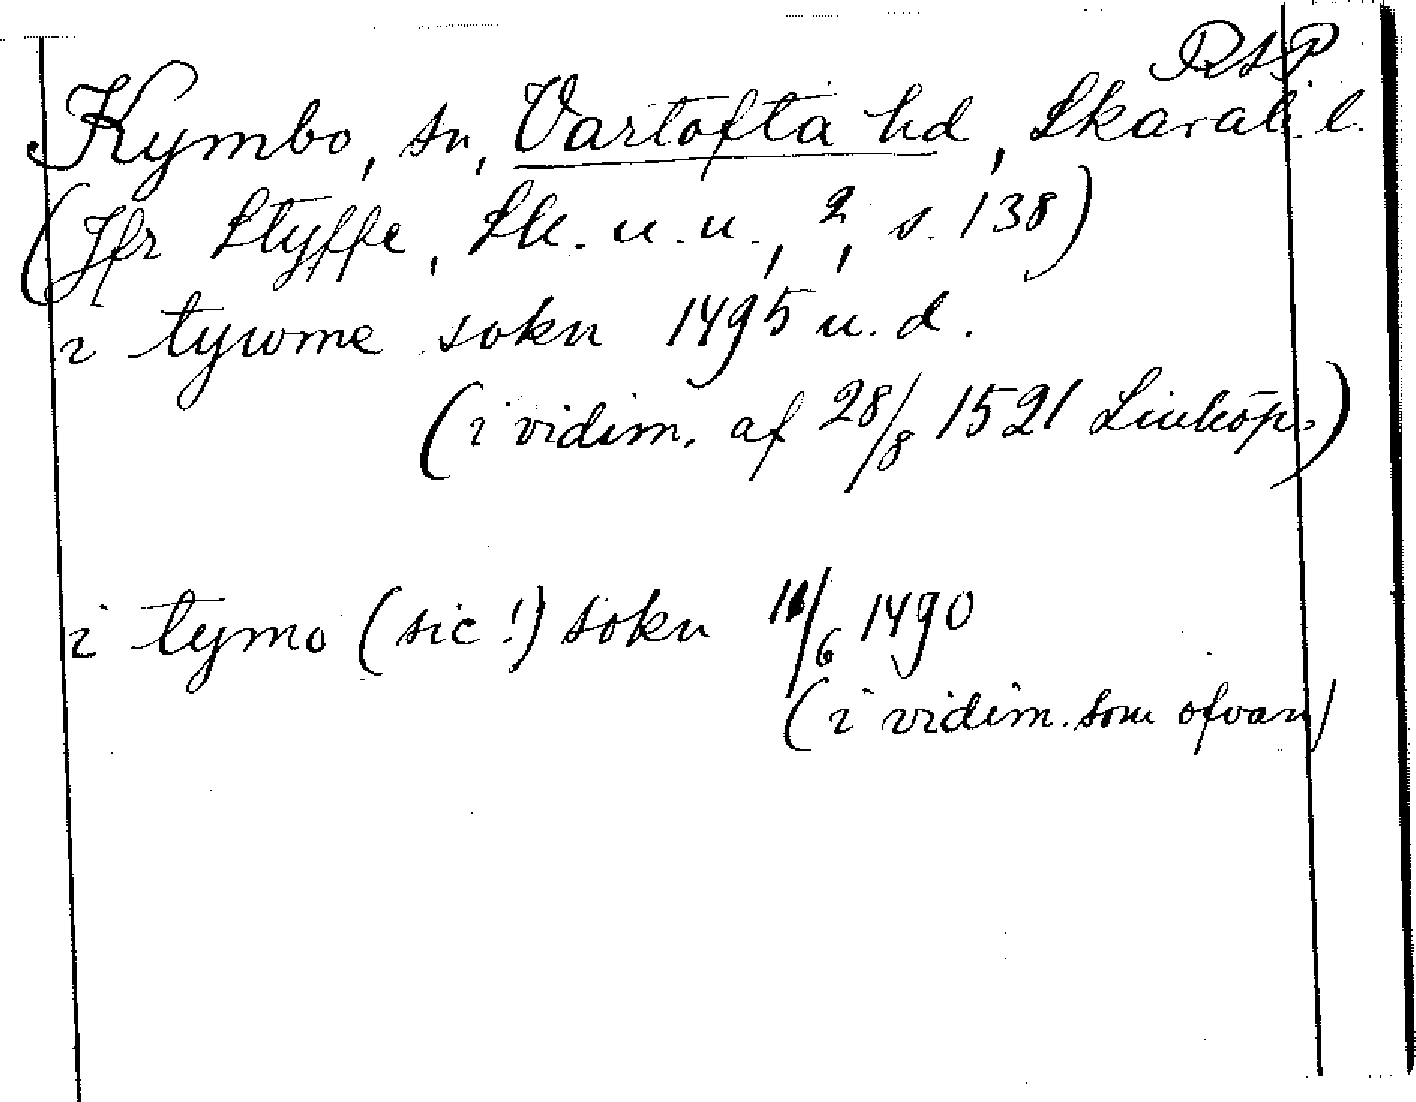 RAP
Kymbo, sn, Vartofta hd, Skarab. l.
(Jfr Styffe, Sk. u. u., 2, s. 138)
i tywme sokn 1495 u. d.
(i vidim. af 28/8 1521 Linköp.)
i tymo (sic!) sokn /6 1490
(i vidim. som ofvan)